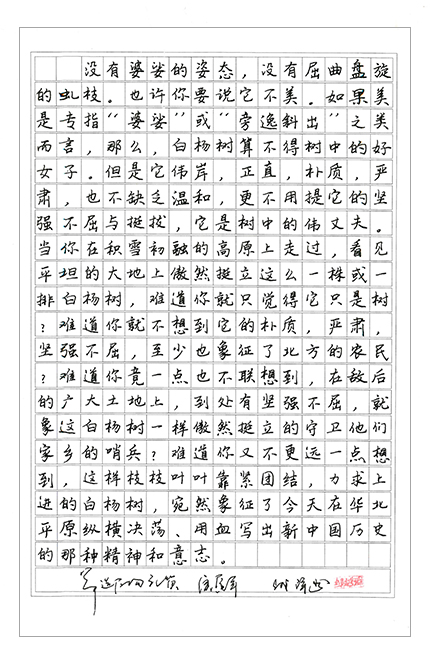 没有婆娑的姿态，没有屈曲盘旋
的虬枝。也许你要说它不美。如果美
是专指“婆娑”或“旁逸斜出”之类
而言，那么，白杨树算不得树中的好
女子。但是它伟岸，正直，朴质，严
肃，也不缺乏温和，更不用提它的坚
强不屈与挺拔，它是树中的伟丈夫。
当你在积雪初融的高原上走过，看见
平坦的大地上傲然挺立这么一株或一
排白杨树，难道你就只觉得它只是树
？难道你就不想到它的朴质，严肃，
坚强不屈，至少也象征了北方的农民
？难道你竟一点也不联想到，在敌后
的广大土地上，到处有坚强不屈，就
象这白杨树一样傲然挺立的守卫他们
家乡的哨兵？难道你又不更远一点想
到，这样枝枝叶叶靠紧团结，力求上
进的白杨树，宛然象征了今天在华北
平原纵横决荡、用血写出新中国历史
的那种精神和意志。